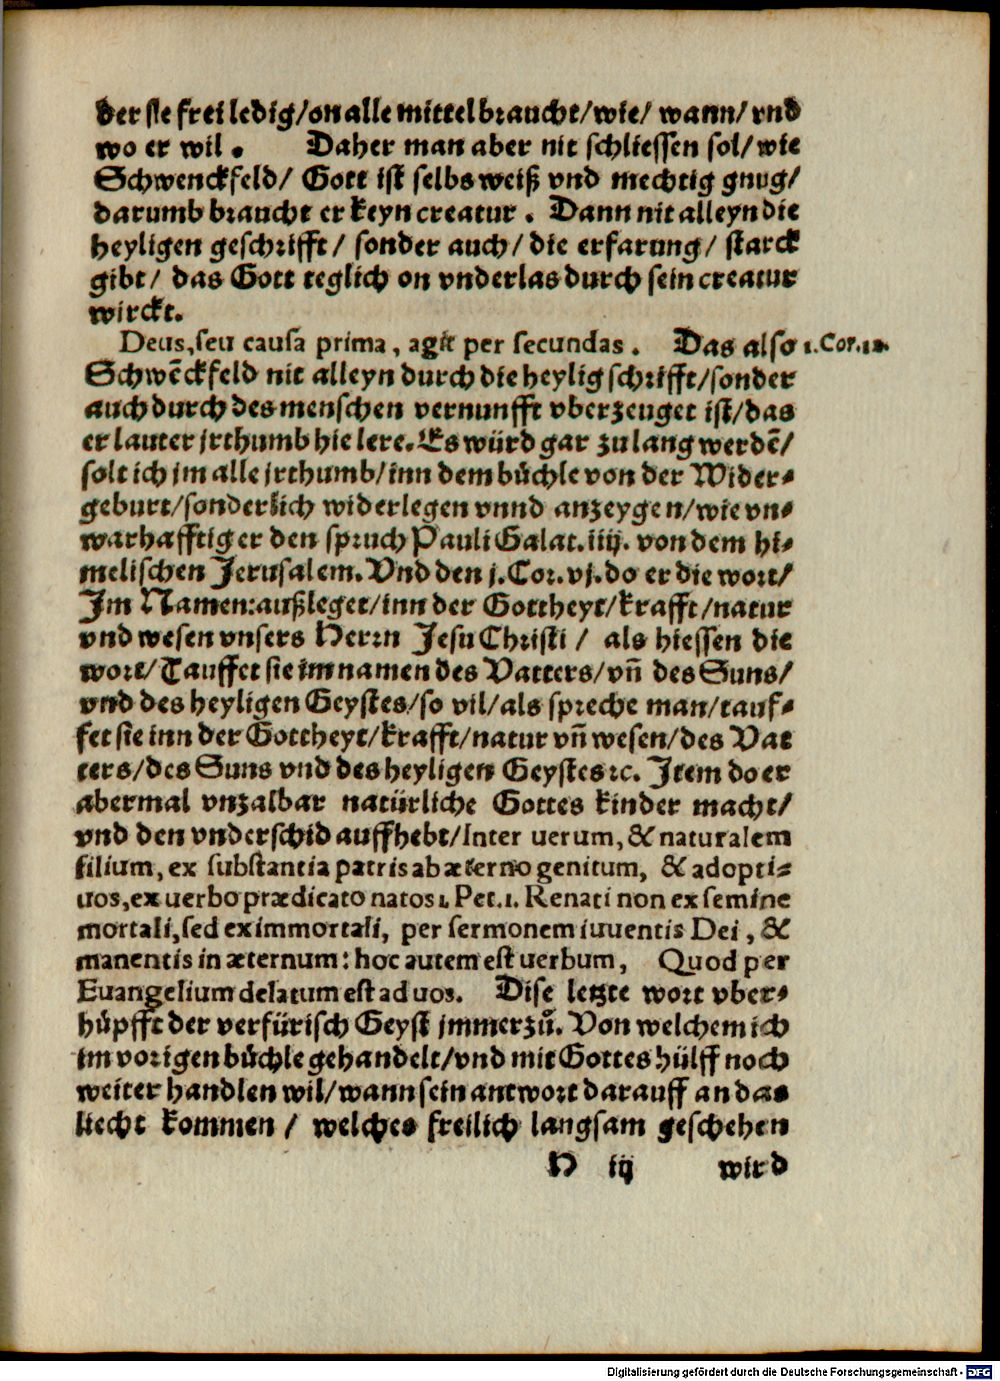 der sie frei ledig/on alle mittel braucht/wie/ wann/ vnd
wo er wil. Daher man aber nit schliessen sol/ wie
Schwenckfeld/ Gott ist selbs weiß vnd mechtig gnug/
darumb braucht er keyn creatur. Dann nit alleyn die
heyligen geschrifft/ sonder auch/ die erfarung/ starck
gibt/ das Gott teglich on vnderlas durch sein creatur
wirckt.
Deus, seu causa prima, agit per secundas. Das also 1. Cor. 12.
Schwēckfeld nit alleyn durch die heylig schrifft/sonder
auch durch des menschen vernunfft vberzeuget ist/das
er lauter jrthumb hie lere. Es würd gar zu lang werdē/
solt ich jm alle jrthumb/inn dem bůchle von der Wider-
geburt/sonderlich widerlegen vnnd anzeygen/wie vn-
warhafftig er den spruch Pauli Galat. iiij. von dem hi-
melischen Jerusalem. Vnd den j. Cor. vj. do er die wort/
Im Namen: außleget/inn der Gottheyt/krafft/natur
vnd wesen vnsers Herrn Jesu Christi/ als hiessen die
wort/Tauffet sie im namen des Vatters/vñ des Suns/
vnd des heyligen Geystes/so vil/als spreche man/tauf-
fet sie inn der Gottheyt/krafft/natur vñ wesen/des Vat
ters/des Suns vnd des heyligen Geystes ꝛc. Item do er
abermal vnzalbar natürliche Gottes kinder macht/
vnd den vnderschid auffhebt/Inter uerum, & naturalem
filium, ex substantia patris ab æterno genitum, & adopti-
uos, ex uerbo prædicato natos 1. Pet. 1. Renati non ex semine
mortali, sed ex immortali, per sermonem iuuentis Dei, &
manentis in æternum: hoc autem est uerbum, Quod per
Euangelium delatum est ad uos. Dise letzte wort vber-
hůpfft der verfürisch Geyst jmmerzů. Von welchem ich
im vorigen bůchle gehandelt/vnd mit Gottes hülff noch
weiter handlen wil/wann sein antwort darauff an das
liecht kommen/ welches freilich langsam geschehen
H iij wird
Digitalisierung gefördert durch die Deutsche Forschungsgemeinschaft - DFG